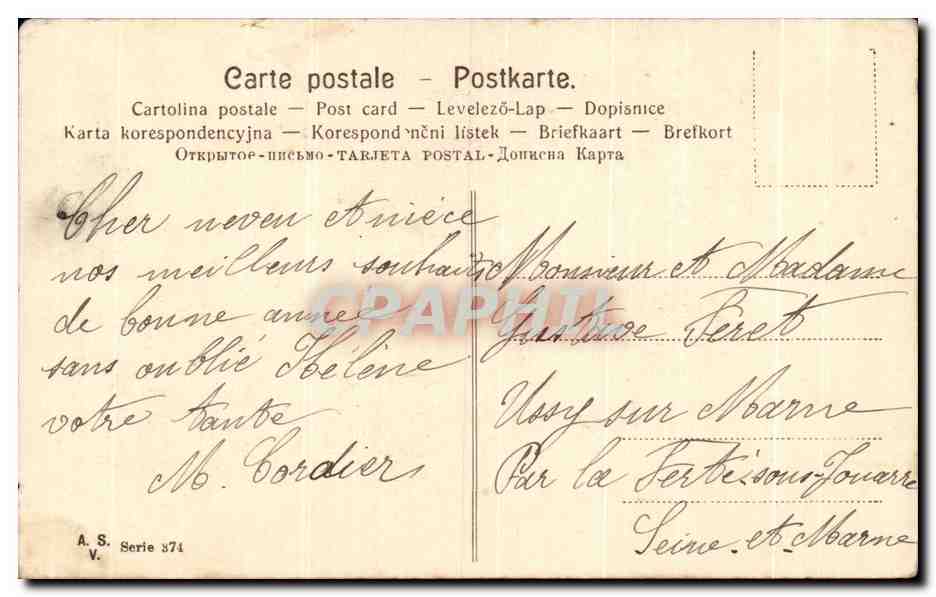 Carte postale - Postkarte.
Cartolina postale — Post card — Levelező-Lap — Dopisnice
Karta korespondencyjna — Korespondenčni lístek — Briefkaart — Brefkort
Открытое-письмо - TARJETA POSTAL - Дописна Карта
Cher neveu et nièce
nos meilleurs souhaits
de bonne année
sans oublié Hélène
votre tante
M. Cordier
Monsieur et Madame
Gustave Feret
Ussy sur Marne
Par la Ferté-sous-Jouarre
Seine-et-Marne
CPAPHIL
A. S.
V. Serie 374